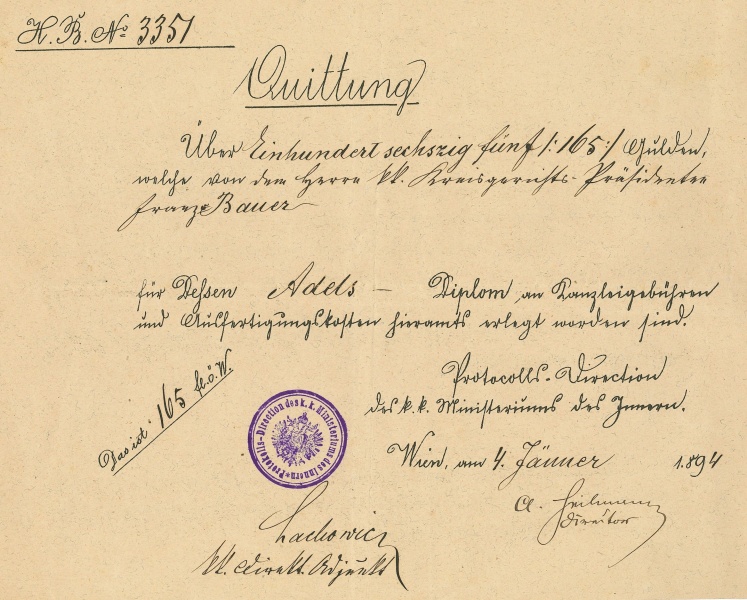 H. B. No 3351
Quittung
Über Einhundert sechszig fünf /:165:/ Gulden,
welche von dem Herrn kk. Kreisgerichts-Präsidenten
Franz Bauer
für Deßen Adels – Diplom an Kanzleigebühren
und Ausfertigungskosten hieramts erlegt worden sind.
Das ist 165 fl. ö. W.
Protocolls-Direction
des k. k. Ministeriums des Innern.
Protokolls-Direction des k. k. Ministeriums des Innern
Wien, am 4. Jänner 1894
Director
kk. Direkt. Adjunkt